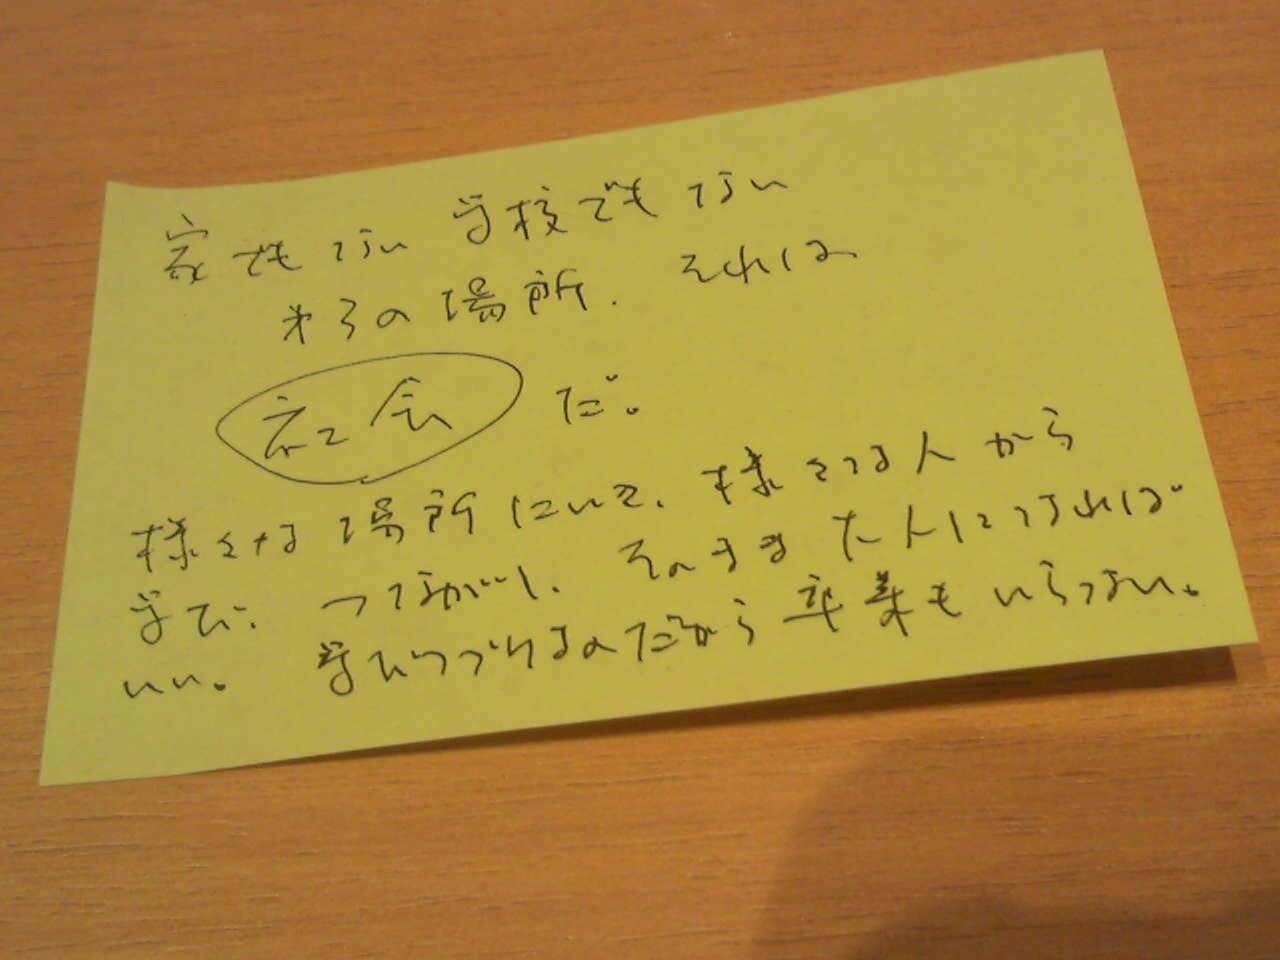 家でもない 学校でもない
第3の場所. それは
社会 だ。
様々な場所にいて、様々な人から
学び、つながり、そのまま大人になれば
いい。学びつづけるのだから卒業もいらない。